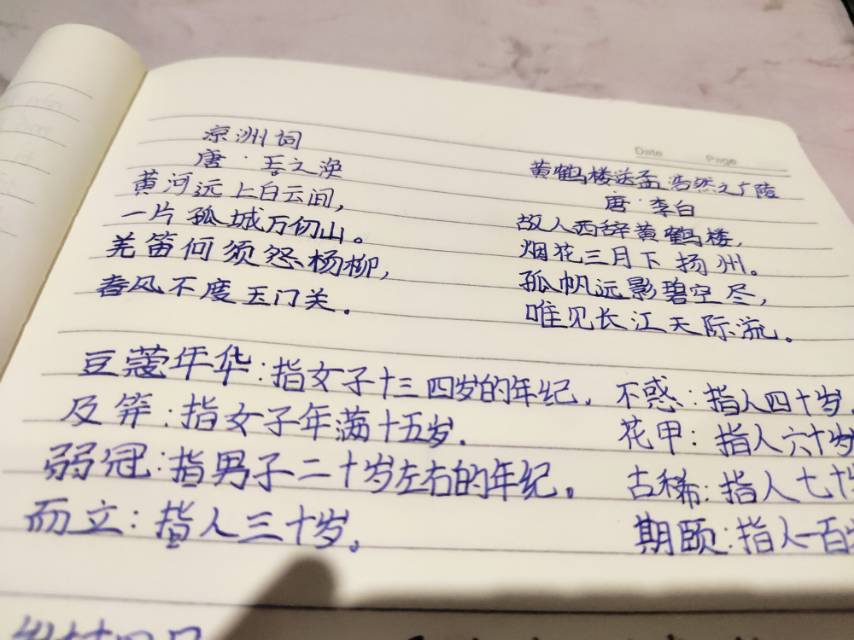 凉洲词
唐·王之涣
黄河远上白云间,
一片孤城万仞山。
羌笛何须怨杨柳,
春风不度玉门关。
Date Page
黄鹤楼送孟浩然之广陵
唐·李白
故人西辞黄鹤楼,
烟花三月下扬州。
孤帆远影碧空尽,
唯见长江天际流。
豆蔻年华:指女子十三四岁的年纪.
及笄:指女子年满十五岁.
弱冠:指男子二十岁左右的年纪。
而立:指人三十岁。
不惑:指人四十岁,
花甲:指人六十岁
古稀:指人七十岁
期颐:指人一百岁